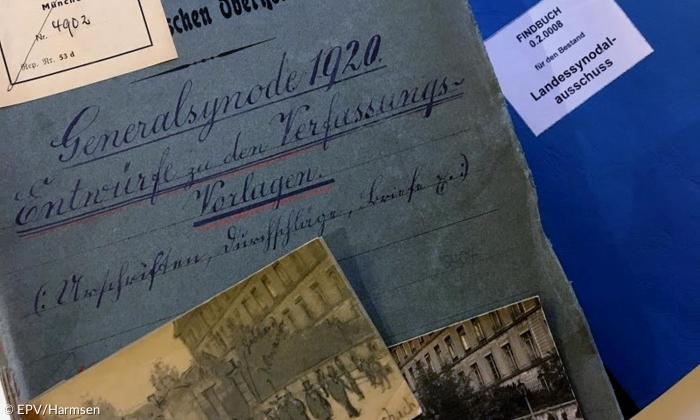 München
Nr. 4902
Rep. Nr. 53 d
Generalsynode 1920.
Entwürfe zu den Verfassungs-
Vorlagen.
(: Urschriften, Durchschläge, Briefe pp :)
FINDBUCH
0.2.0008
für den Bestand
Landessynodal-
ausschuss
© EPV/Harmsen